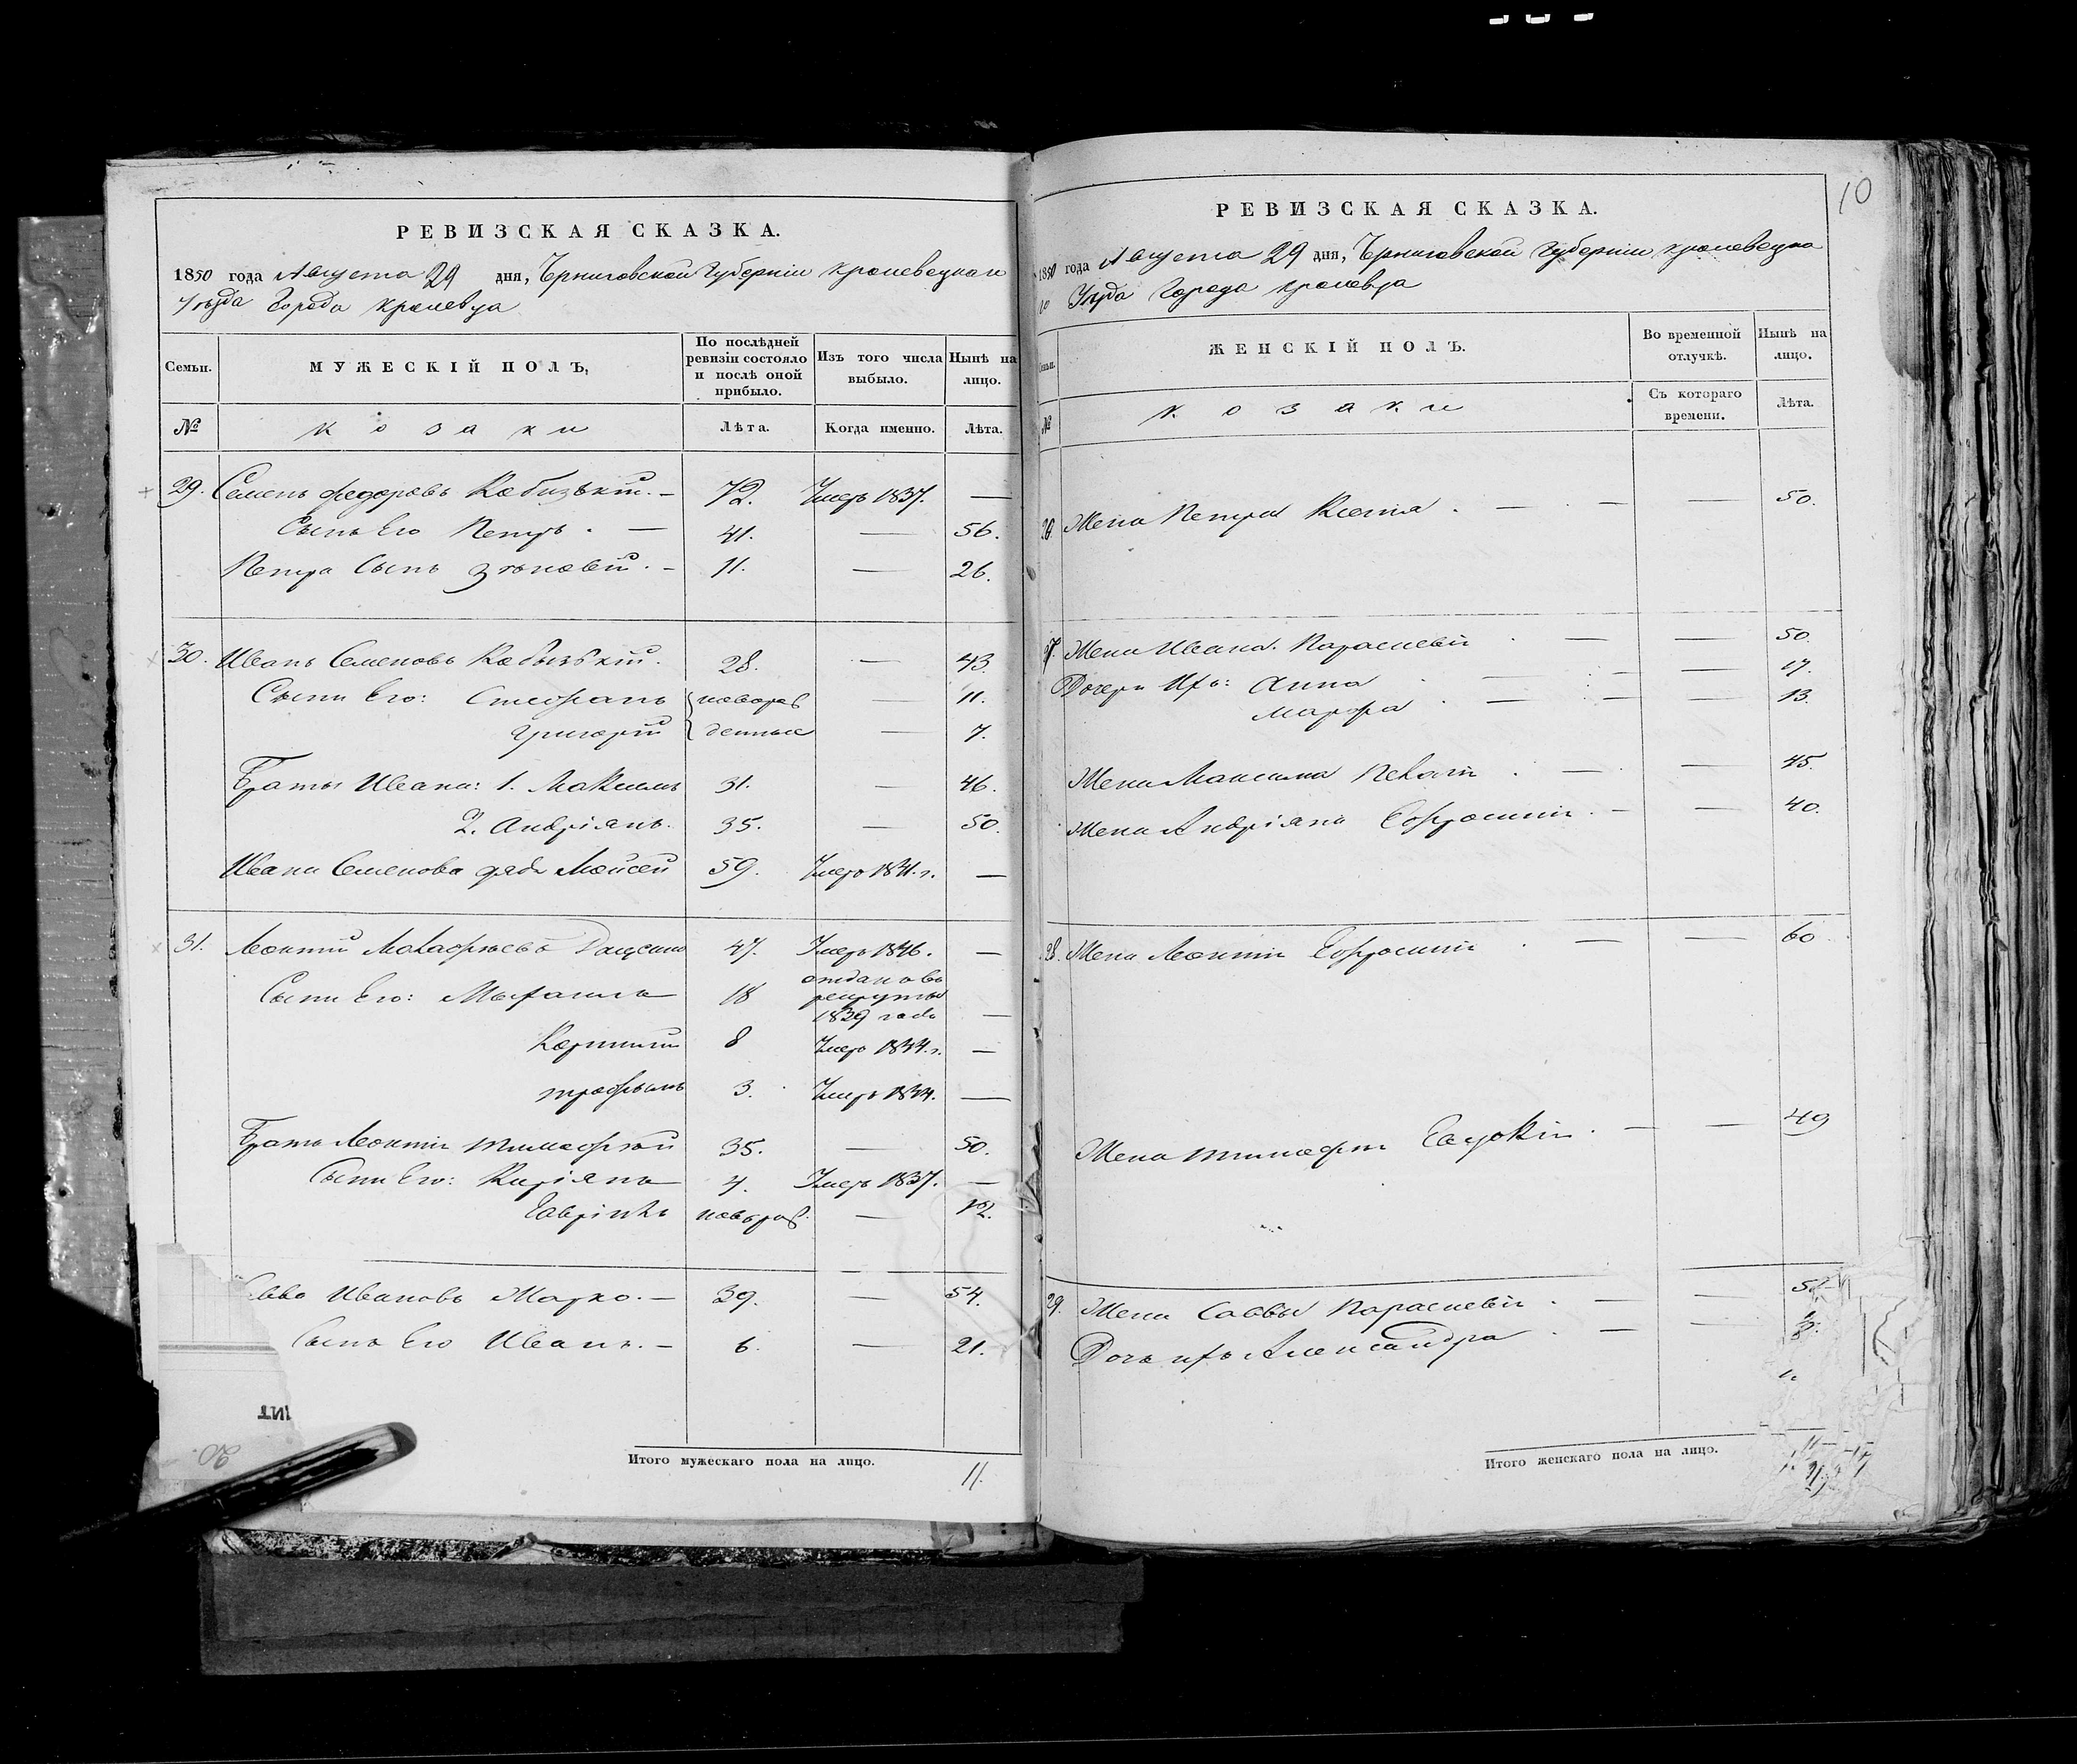 10
РЕВИЗСКАЯ СКАЗКА.
1850 года Августа 29 дня, Черниговской Губерніи Кролевецкаго
Уѣзда Города Кролевца
Семьи.
МУЖЕСКІЙ ПОЛЪ,
По послѣдней ревизіи состояло и послѣ оной прибыло.
Изъ того числа выбыло.
Нынѣ на лицо.
№
Козаки
Лѣта.
Когда именно.
Лѣта.
29. Семенъ Федоровъ Кабызькій. — 72. Умеръ 1837. —
Сынъ Его Петръ. — 41. — 56.
Петра Сынъ Зѣновій. — 11. — 26.
30. Иванъ Семеновъ Кабызькій. 28. — 43.
Сыни Его: Стефанъ новорож — 11.
Григорій денные — 7.
Браты Ивана: 1. Максимъ 31. — 46.
2. Андріянъ. 35. — 50.
Ивана Семенова дядя Моисей 59. Умеръ 1841. г. —
31. Леонтій 47. Умеръ 1846. —
Сыни Его: 18 отданъ въ рекруты 1839 года —
Корнилій 8 Умеръ 1844. г. —
Трофымъ 3. Умеръ 1844. —
Братъ Леонтія Тимофѣй 35. — 50.
Сыни Его: Киріянъ 4. Умеръ 1837. —
Гавріилъ новорож. — 12.
Ивановъ Марко. — 39. — 54.
Сынъ Его Иванъ. — 6. — 21.
Итого мужескаго пола на лицо. 11.
РЕВИЗСКАЯ СКАЗКА.
1850 года Августа 29 дня, Черниговской Губерніи Кролевецка
го Уѣзда Города Кролевца
Семьи.
ЖЕНСКІЙ ПОЛЪ.
Во временной отлучкѣ.
Нынѣ на лицо.
№
Козаки
Съ котораго времени.
Лѣта.
Жена Петра Ксенія. — — — 50.
Жена Ивана. Параскевія — — 50.
Дочери Ихъ: Анна — — 17.
Марфа — — 13.
Жена Максима Пелагія — — 45.
Жена Андріяна Ефросинія. — — 40.
28. Жена Леонтія Ефросинія — — 60
Жена Тимофея Евдокія. — — 49
29. Жена Саввы Параскевія. — —
Дочь ихъ Александра — —
Итого женскаго пола на лицо.